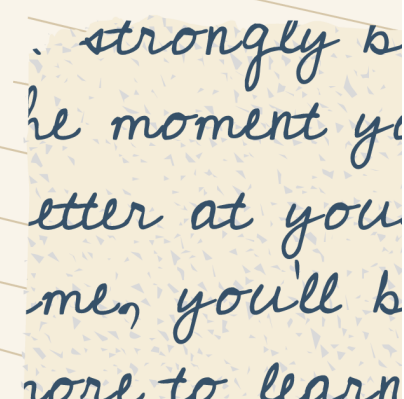 . strongly b
he moment yo
etter at you
me, you'll b
nore to learn